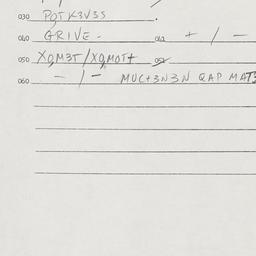 030 PQTK3V3S .
040 GRIVE - 042 + / -
050 XQM3T/XQMOT+ 052
060 - / - MUC+3N3N QAP MAT3